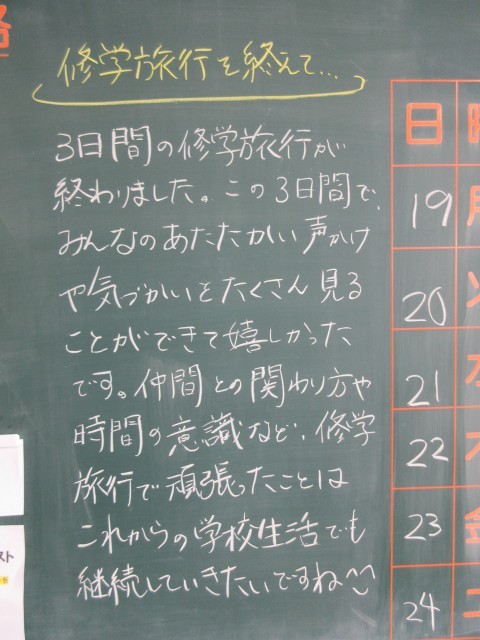 修学旅行を終えて…
3日間の修学旅行が
終わりました。この3日間で、
みんなのあたたかい声かけ
や気づかいをたくさん見る
ことができて嬉しかった
です。仲間との関わり方や
時間の意識など、修学
旅行で頑張ったことは
これからの学校生活でも
継続していきたいですね〜
日
19 月
20 火
21 水
22 木
23 金
24 土
スト